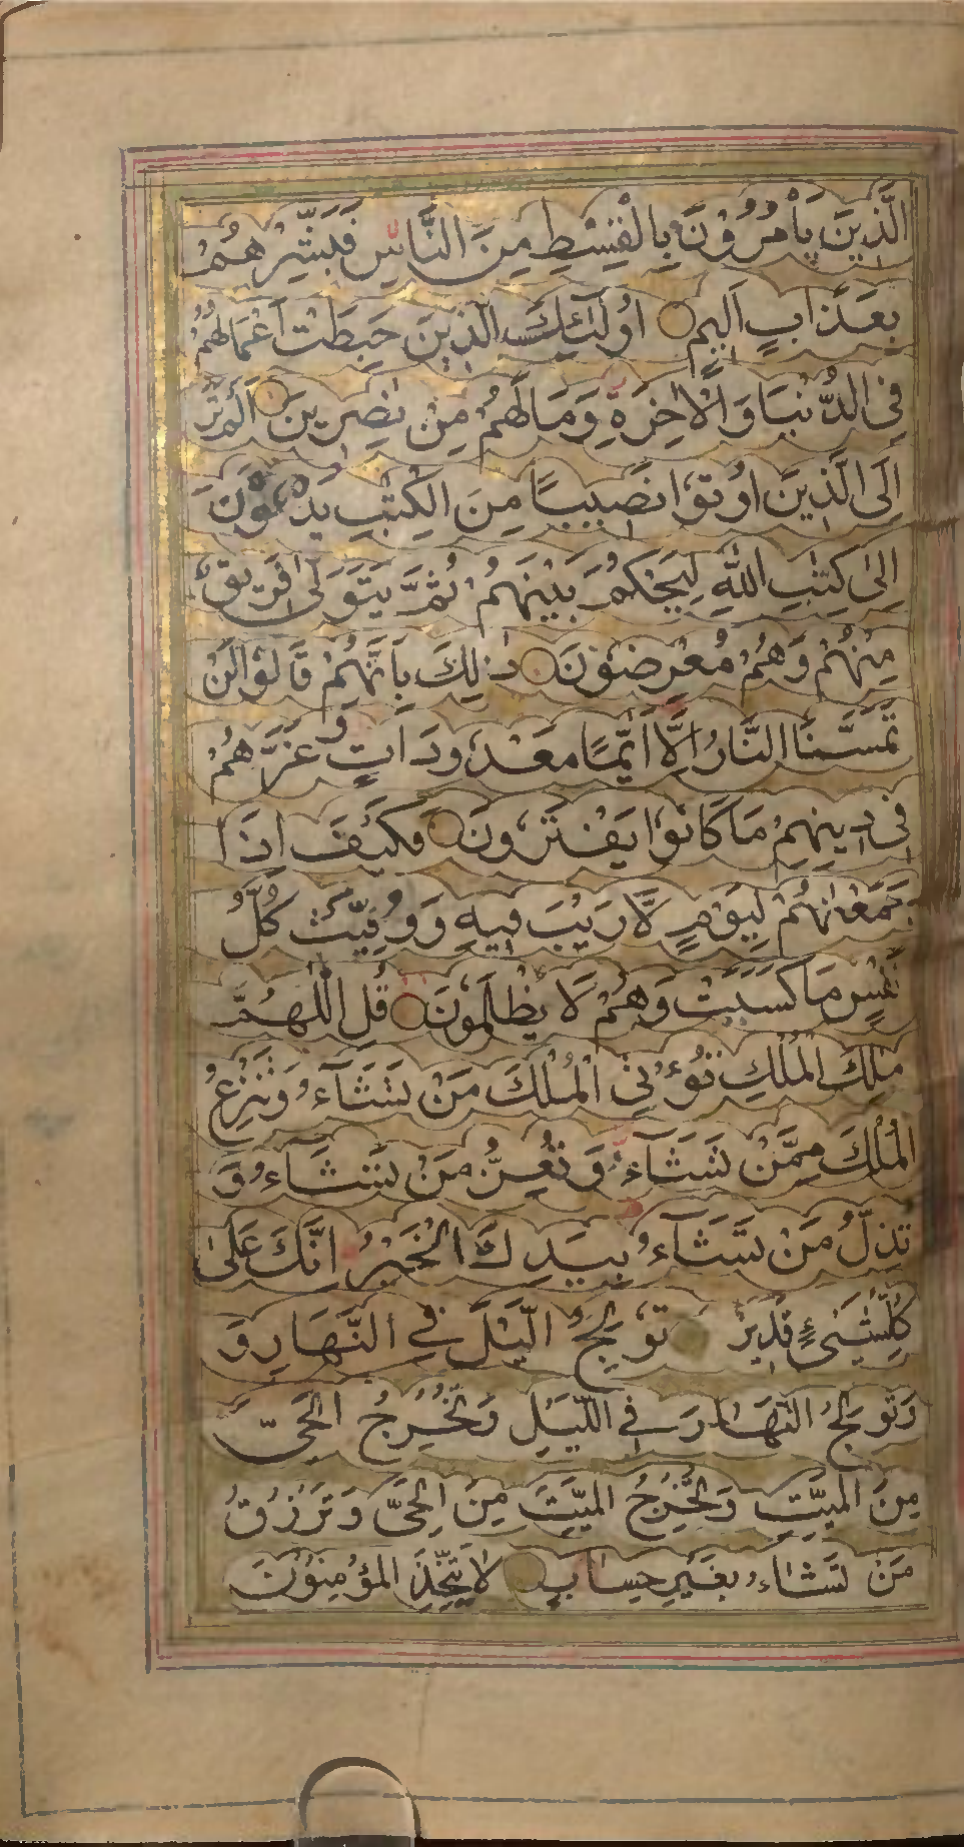 الَّذِينَ يَأْمُرُوْنَ بِالْقِسْطِ مِنَ النَّاسِ فَبَشِّرْهُمْ
بِعَذَابٍ اَلِيمٍ اُولٰٓئِكَ الَّذِينَ حَبِطَتْ اَعْمَالُهُمْ
فِى الدُّنْيَا وَالْاٰخِرَةِ وَمَا لَهُمْ مِنْ نٰصِرِينَ اَلَمْ تَرَ
اِلَى الَّذِينَ اُوتُوْا نَصِيبًا مِنَ الْكِتٰبِ يُدْعَوْنَ
اِلٰى كِتٰبِ اللّٰهِ لِيَحْكُمَ بَيْنَهُمْ ثُمَّ يَتَوَلّٰى فَرِيقٌ
مِنْهُمْ وَهُمْ مُعْرِضُوْنَ ذٰلِكَ بِاَنَّهُمْ قَالُوْا لَنْ
تَمَسَّنَا النَّارُ اِلَّا اَيَّامًا مَعْدُودَاتٍ وَغَرَّهُمْ
فِى دِينِهِمْ مَا كَانُوْا يَفْتَرُونَ فَكَيْفَ اِذَا
جَمَعْنٰهُمْ لِيَوْمٍ لَّا رَيْبَ فِيهِ وَوُفِّيَتْ كُلُّ
نَفْسٍ مَا كَسَبَتْ وَهُمْ لَا يُظْلَمُوْنَ قُلِ اللّٰهُمَّ
مٰلِكَ الْمُلْكِ تُؤْتِى الْمُلْكَ مَنْ تَشَآءُ وَتَنْزِعُ
الْمُلْكَ مِمَّنْ تَشَآءُ وَتُعِزُّ مَنْ تَشَآءُ وَ
تُذِلُّ مَنْ تَشَآءُ بِيَدِكَ الْخَيْرُ اِنَّكَ عَلٰى
كُلِّ شَىْءٍ قَدِيرٌ تُوْلِجُ الَّيْلَ فِى النَّهَارِ وَ
وَتُولِجُ النَّهَارَ فِى اللَّيْلِ وَتُخْرِجُ الْحَىَّ
مِنَ الْمَيِّتِ وَتُخْرِجُ الْمَيِّتَ مِنَ الْحَىِّ وَتَرْزُقُ
مَنْ تَشَاءُ بِغَيْرِ حِسَابٍ لَا يَتَّخِذِ الْمُؤْمِنُوْنَ